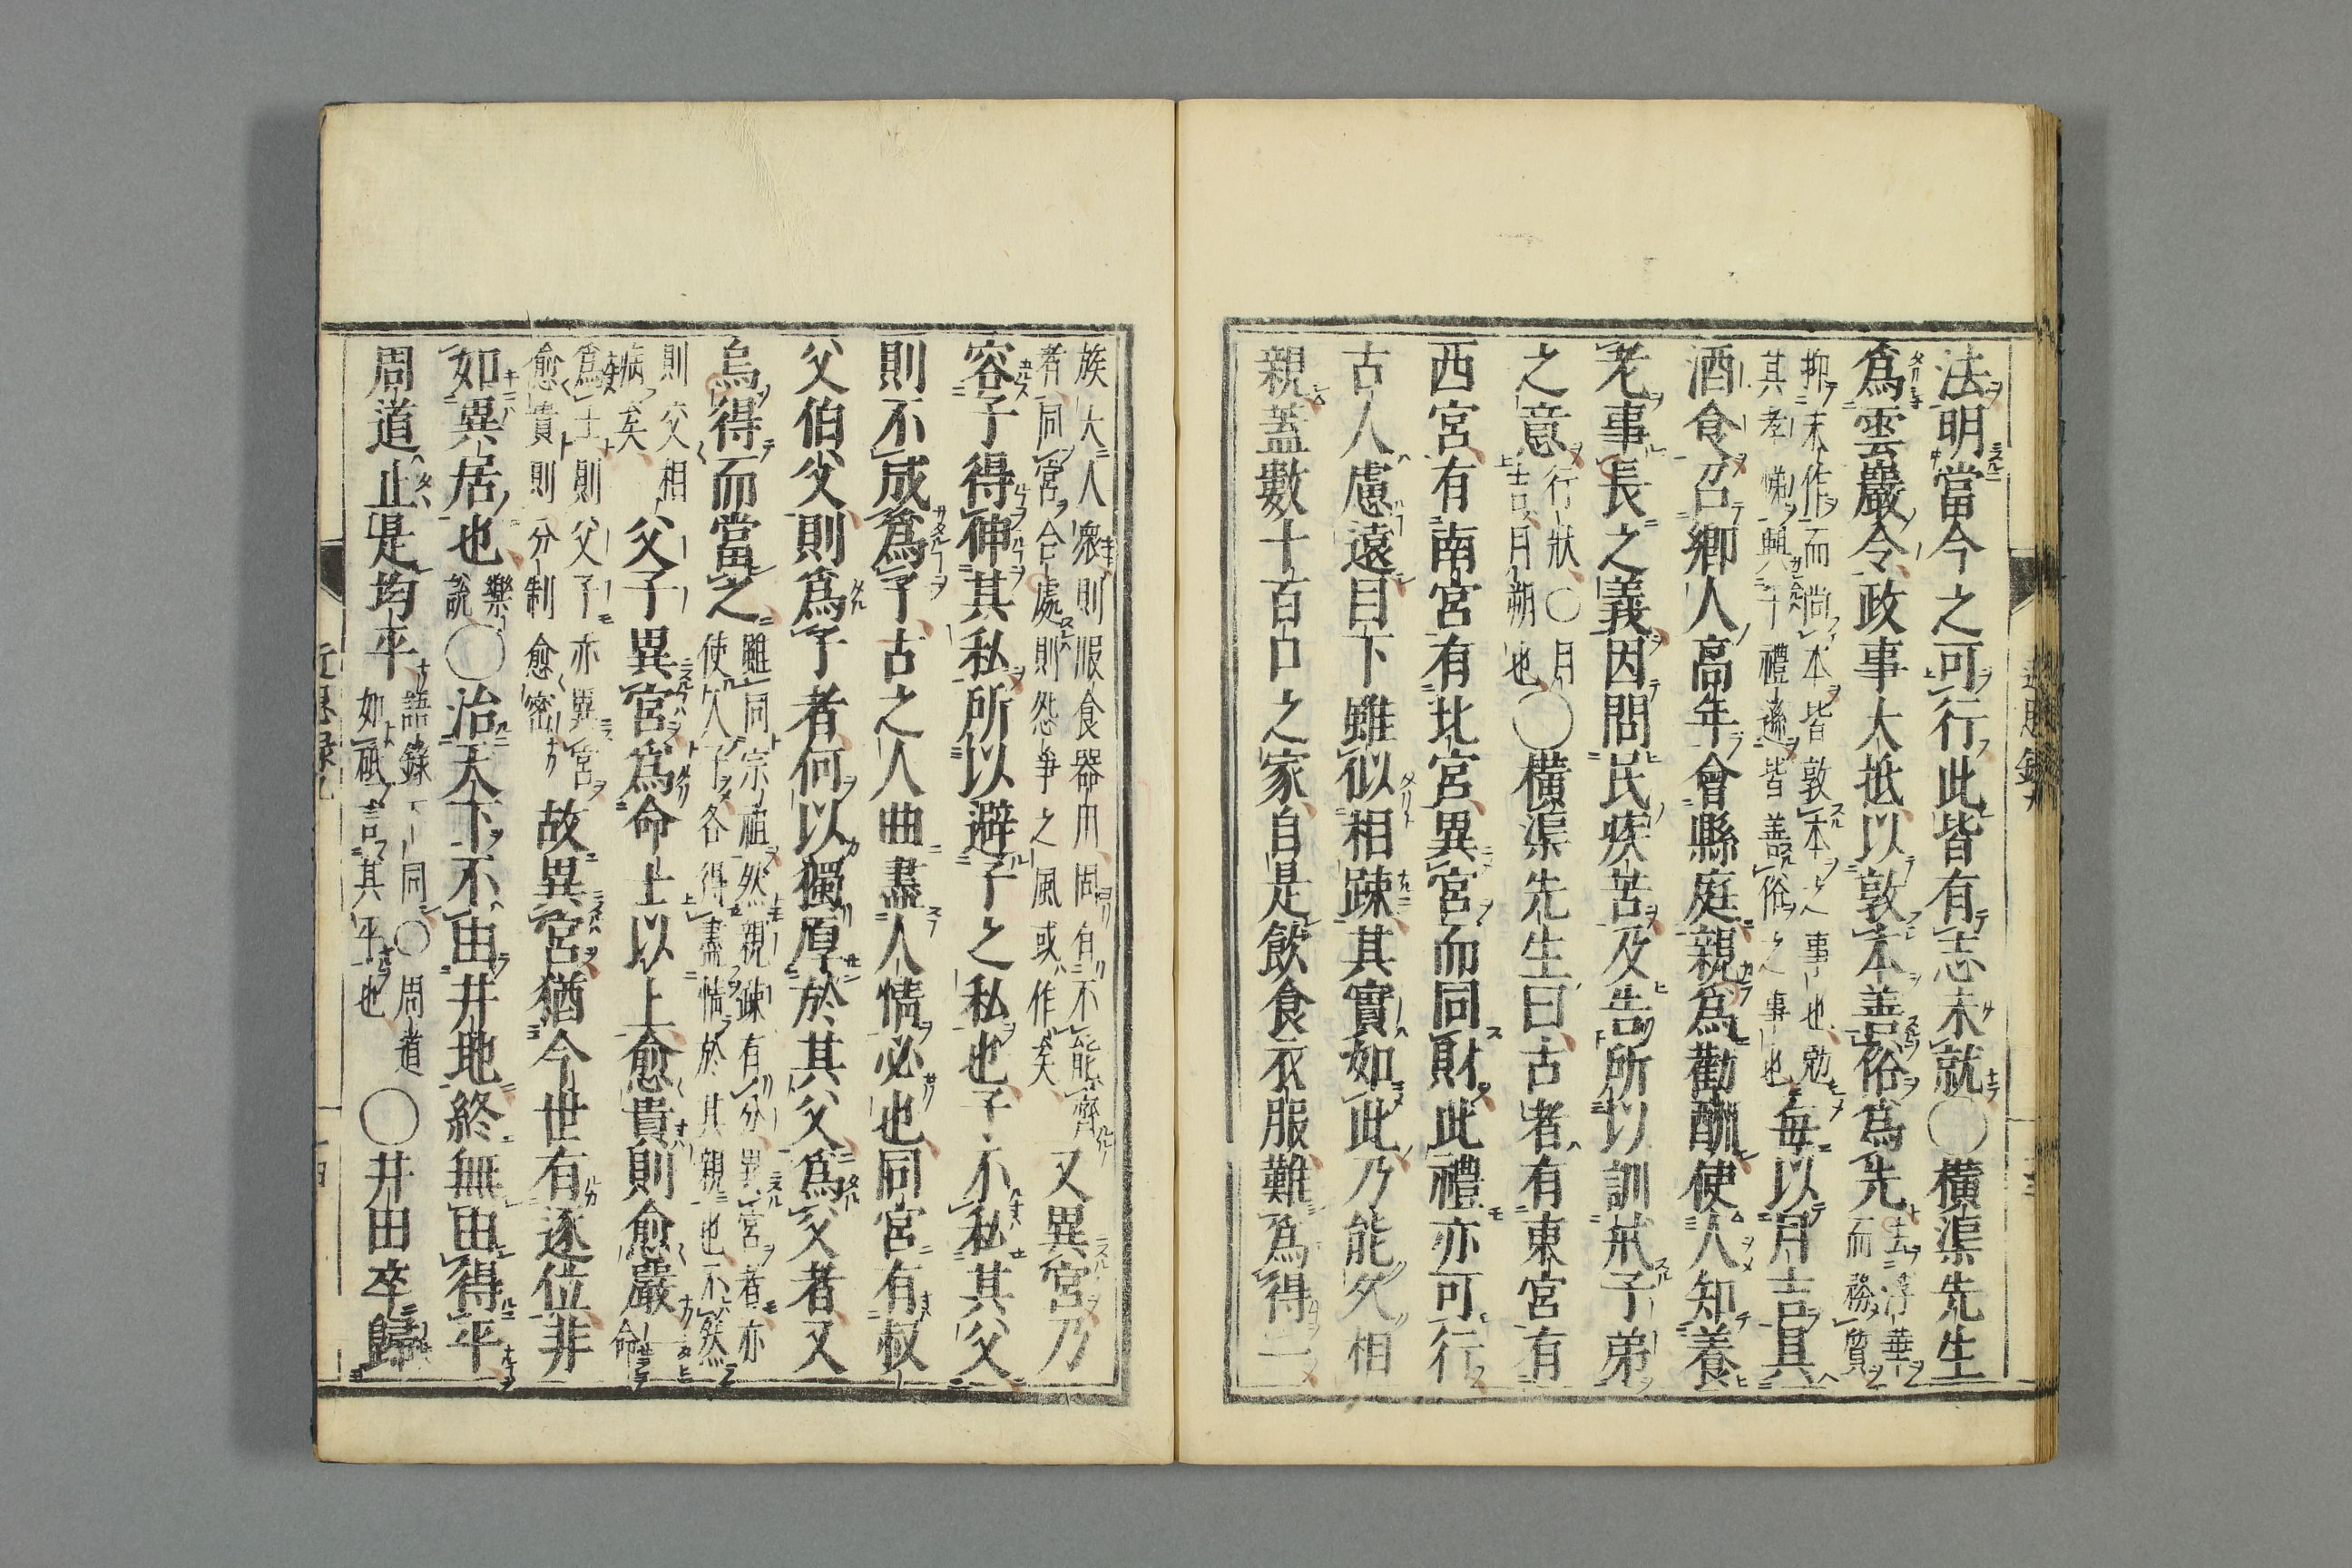 法明當今之可行此皆有志未就〇橫渠先生
爲雲巖令政事大抵以敦本善俗爲先去浮華而務質
抑末作而尚本皆敦本之事也勉其孝悌興于禮遜皆善俗之事也每以月吉具
酒食召鄉人高年會縣庭親爲勸酬使人知養
老事長之義因問民疾苦及告所以訓戒子弟
之意行狀〇月吉月朔也〇橫渠先生曰古者有東宮有
西宮有南宮有北宮異宮而同財此禮亦可行
古人慮遠目下雖似相疎其實如此乃能久相
親蓋數十百口之家自是飲食衣服難爲得一
族大人衆則服食器用固有不能齊者同宮合處則怨爭之風或作矣又異宮乃
容子得伸其私所以避子之私也子不私其父
則不成爲子古之人曲盡人情必也同宮有叔
父伯父則爲子者何以獨厚於其父爲父者又
烏得而當之雖同宗祖然親疎有分異宮者亦使人子各得盡情於其親也不然
則交相病矣父子異宮爲命士以上愈貴則愈嚴命
爲士則父子亦異宮愈貴則分制愈密故異宮猶今世有逐位非
如異居也樂說〇治天下不由井地終無由得平
周道止是均平語錄下同〇周道如砥言其平也〇井田卒歸
近思録九